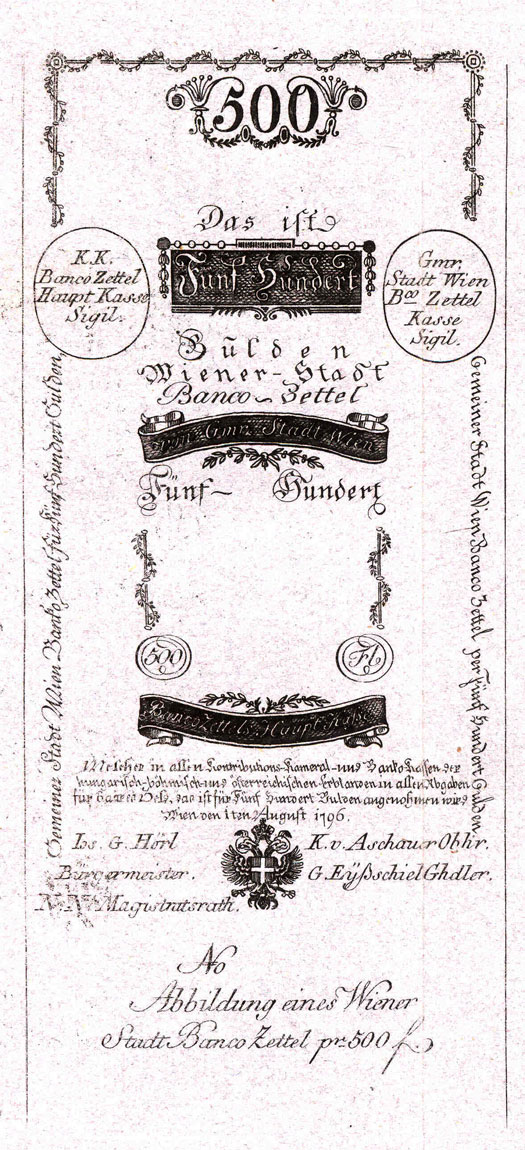 500
Das ist
Fünf Hundert
K.K.
Banco Zettel
Haupt Kasse
Sigil.
Gmr.
Stadt Wien
Bco Zettel
Kasse
Sigil.
Gulden
Wiener-Stadt
Banco-Zettel
von Gmr. Stadt Wien
Fünf- Hundert
Gemeiner Stadt Wien Banko Zettel für Fünf Hundert Gulden,
Gemeiner Stadt Wien Banco Zettel per Fünf Hundert Gulden
500
Fl
Banco Zettels Haupt Kasse
Welcher in allen Kontributions-Kameral-und Banko Kassen der
hungarisch-böhmisch-und österreichischen Erblanden in allen Abgaben
für baares Geld, das ist für Fünf Hundert Gulden angenohmen wird
Wien den 1ten August 1796.
Ios. G. Hörl
Bürgermeister.
N. N. Magistratsrath.
K. v. Aschauer Obhr.
G. Eyßschiel Ghdler.
No
Abbildung eines Wiener
Stadt Banco Zettel pr. 500 f.